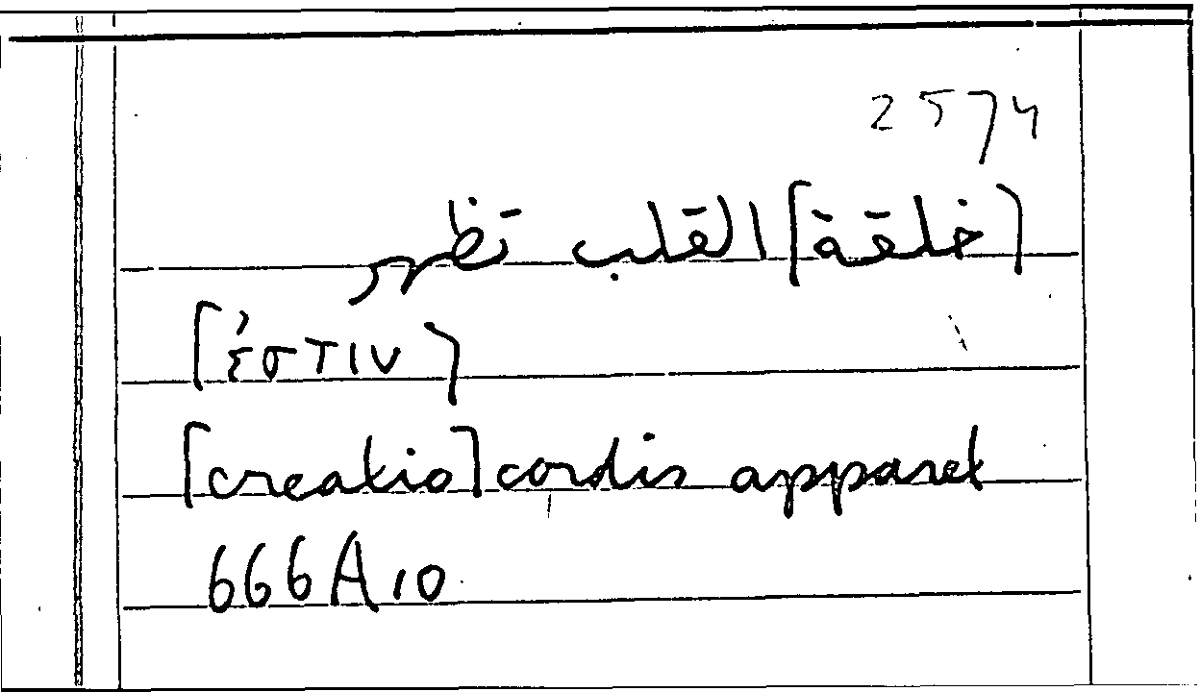 2574
[خلقة] القلب تظهر
[ἐστιν]
[creatio] cordis apparet
666A10